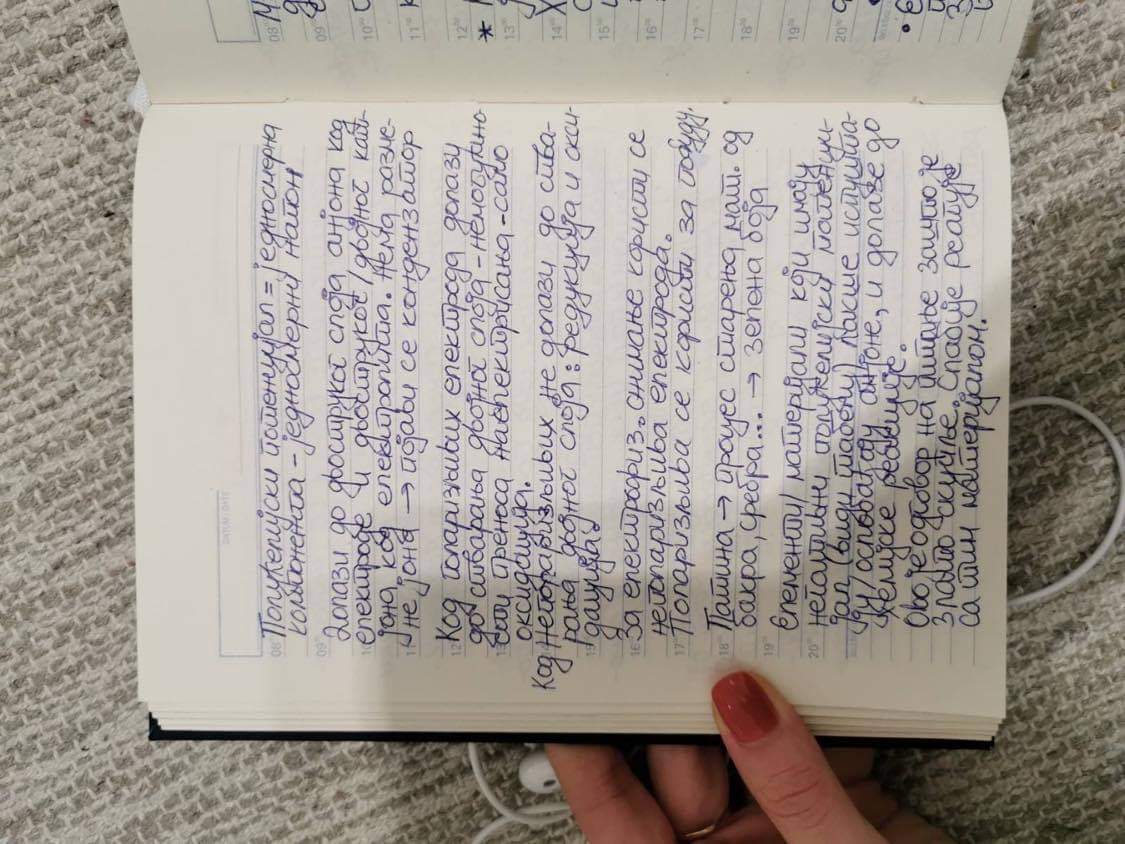 Полућелијски потенцијал = једносмерна
компонента - једносмерни напон
Долази до двоструког споја анјона код
електроде и двоструког / двојног кат-
јона код електролита. Нема разме-
не јона → појави се кондензатор
Код поларизљивих електрода долази
до стварања двојног споја - немогућно-
сти преноса наелектрисања - само
оксидација.
Код неполаризљивих не долази до ства-
рања двојног споја: редукција и окси-
дација?
За електрофиз. снимање користи се
неполаризљива електрода.
Поларизљива се користи за побуду.
Патина → процес старења мат. од
бакра, сребра... → зелена боја
Елементи / материјали који имају
негативни полућелијски потенци-
јал (види табену) лакше испушта-
ју / ослобађају анјоне, и долазе до
ћелијске реакције.
Ово је одговор на питање зашто је
злато скупље. Спорије реагује
са тим материјалом.
DATUM / DATE
08
09
10
11
12
13
15
16
17
18
19
20
08
09
10
11
12
13
14
15
16
17
18
19
20